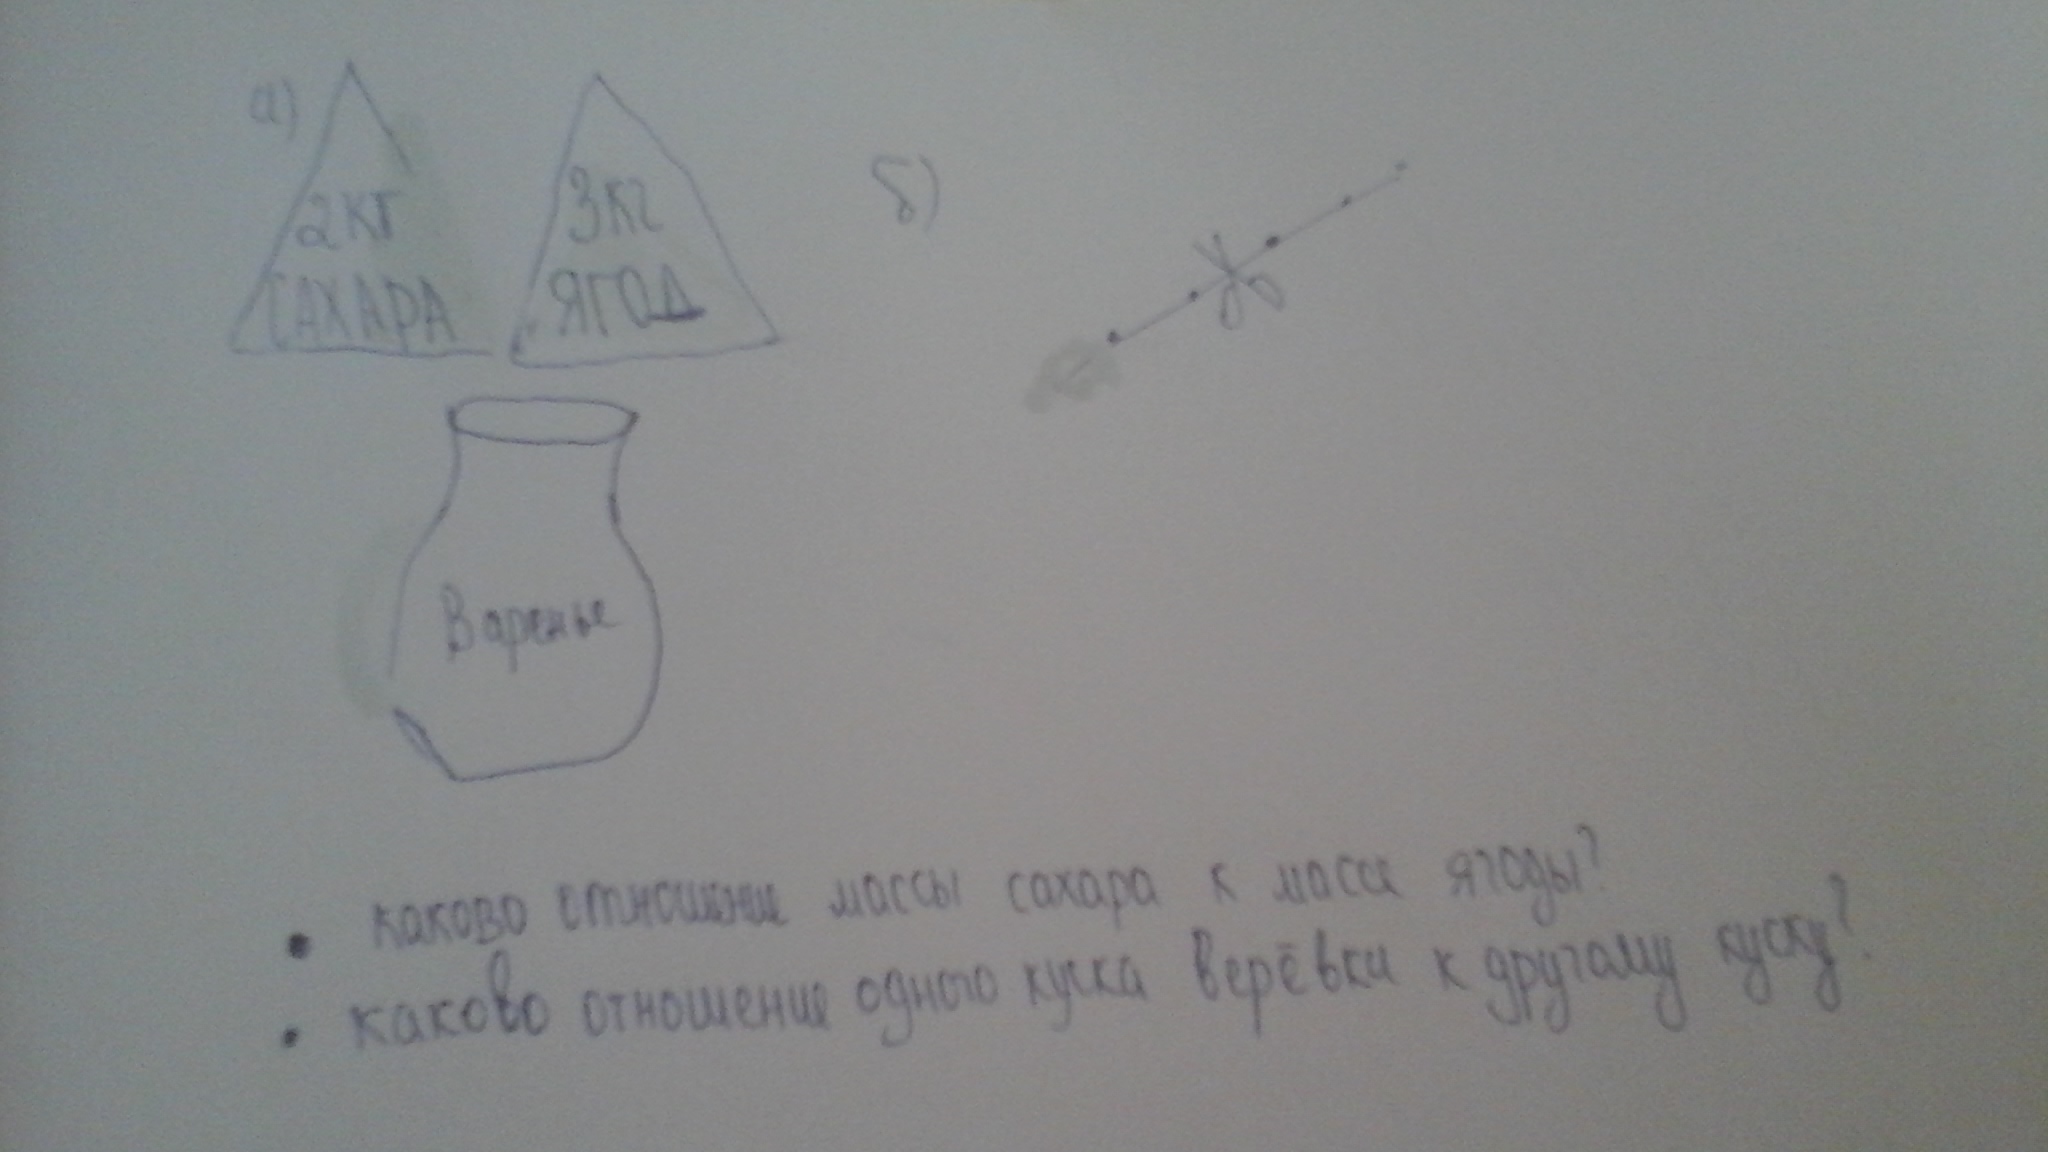 а)
2кг
САХАРА
3кг
ЯГОД
б)
Варенье
• каково отношение массы сахара к массе ягоды?
• каково отношение одного куска верёвки к другому куску?